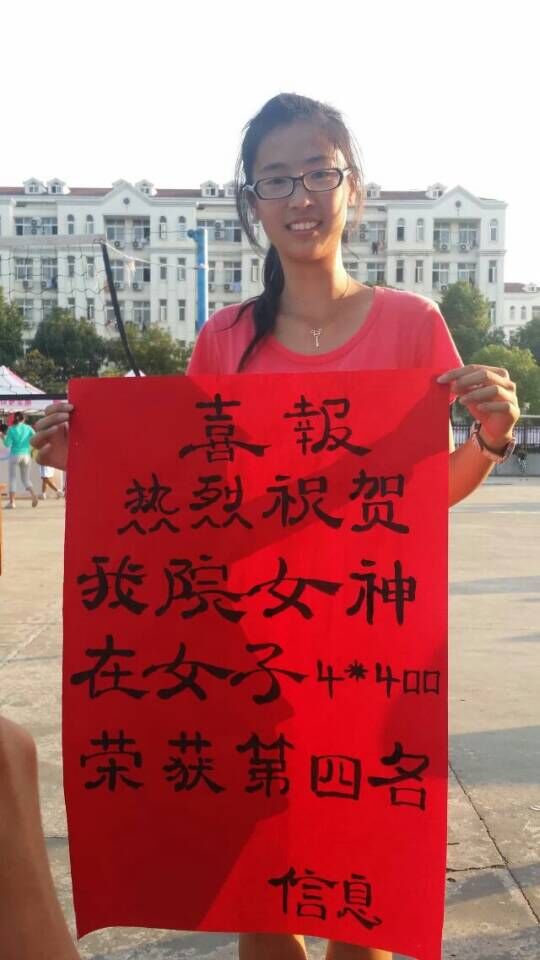 喜報
热烈祝贺
我院女神
在女子4*400
荣获第四名
信息